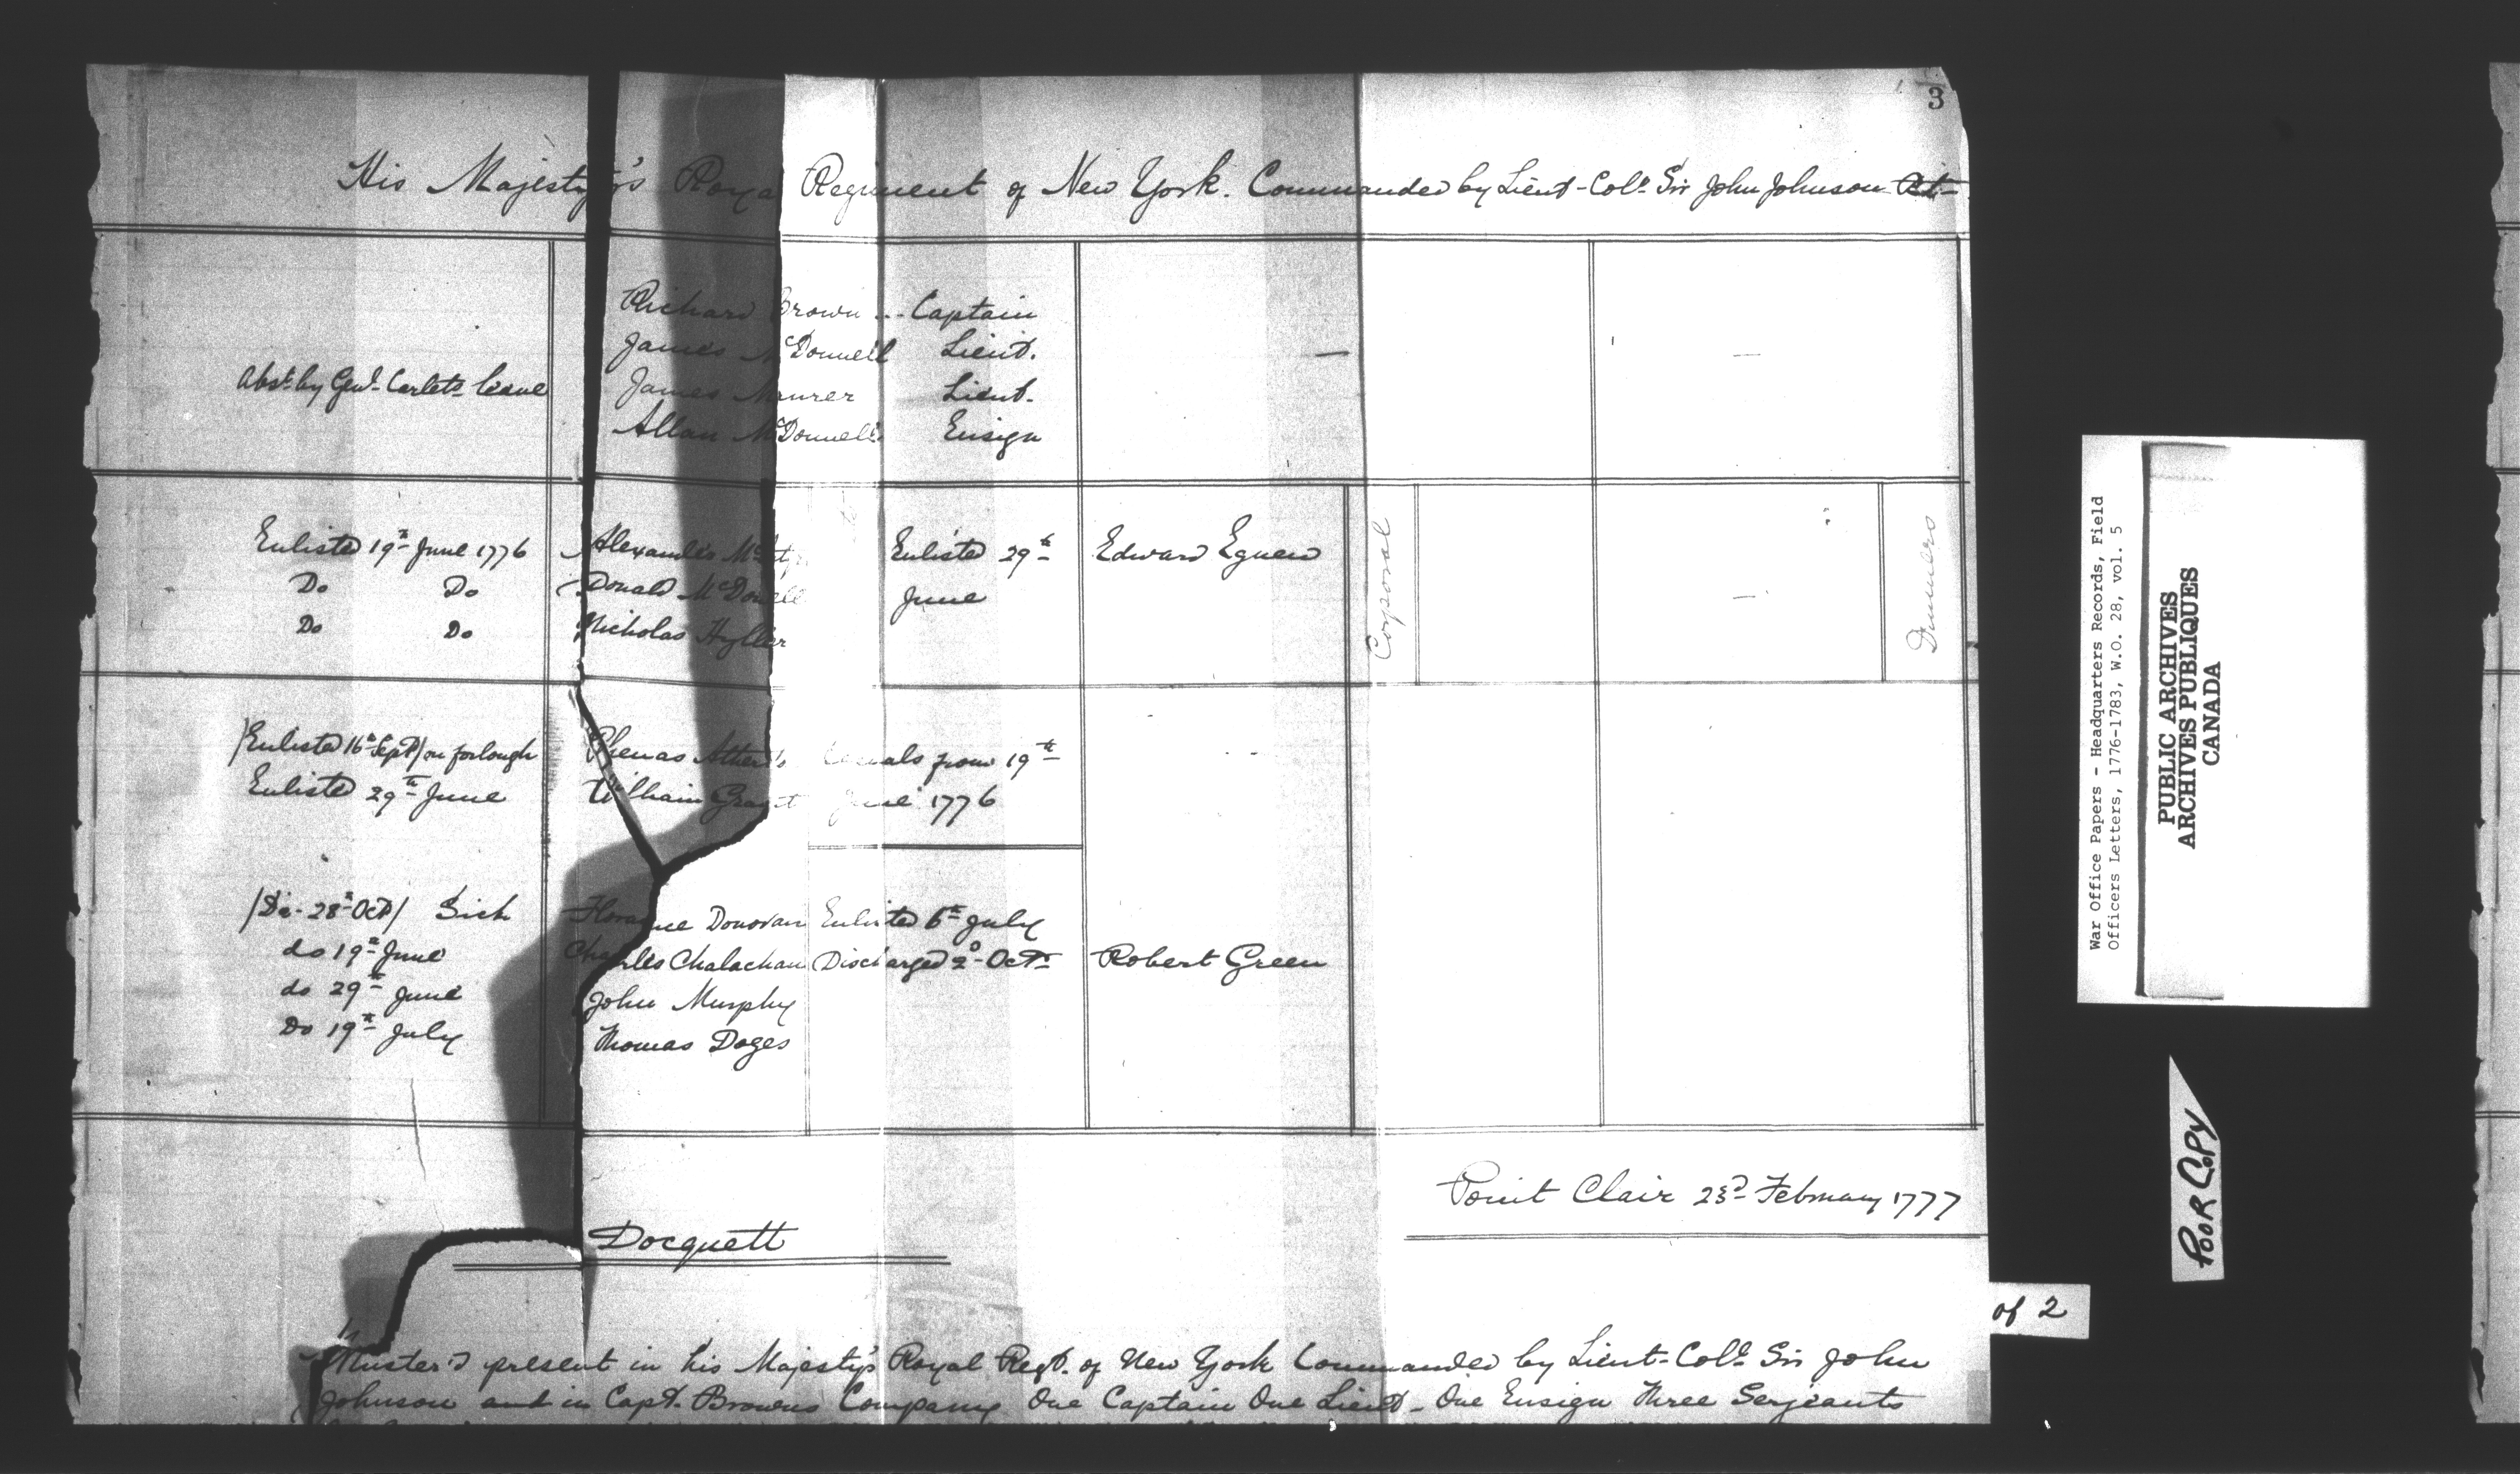 3
His Majesty's Roya Regiment of New York. Commanded by Lieut-Colo. Sir John Johnson
Richard Brown ... Captain
James McDonnell Lieut.
Abst. by Genl. Carlets leave James Maurer Lieut.
Allan McDonnell Ensign
Enlisted 19th June 1776 Alexander Enlisted 29th Edward Egnew
Do Do Donald McDonell June
Do Do Nicholas Hyller
Corporal
Drummers
/Enlisted 16th Sept/ on forlough from 19th
Enlisted 29th June William Grant June 1776
/Do. 28th Oct/ Sick Donovan Enlisted 6th July
do 19th June Charles Chalachan Discharged 2d Octr. Robert Green
do 29th June John Murphy
Do 19th July Thomas Doges
Point Clair 23d February 1777
Docquett
Muster'd present in his Majesty's Royal Regt. of New York Commanded by Lieut-Colo. Sir John
Johnson and in Capt. Browns Company One Captain One Lieut- One Ensign Three Serjeants
War Office Papers - Headquarters Records, Field
Officers Letters, 1776-1783, W.O. 28, vol. 5
PUBLIC ARCHIVES
ARCHIVES PUBLIQUES
CANADA
POOR COPY
of 2